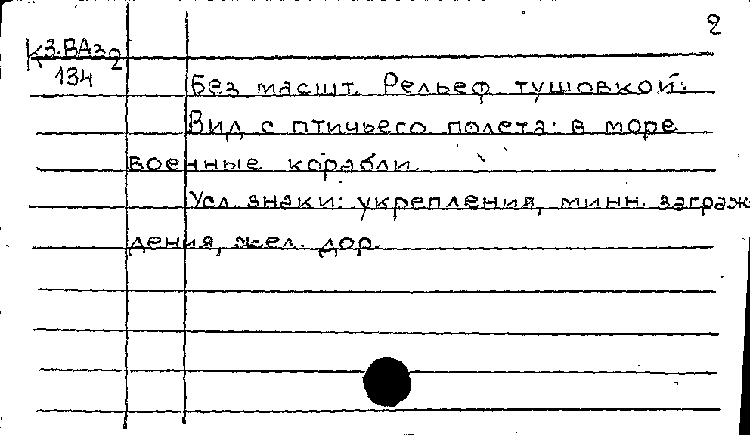 2
К3.ВАз2
134
Без масшт. Рельеф тушовкой.
Вид с птичьего полета: в море
военные корабли.
Усл. знаки: укрепления, минн. заграж-
дения, жел. дор.